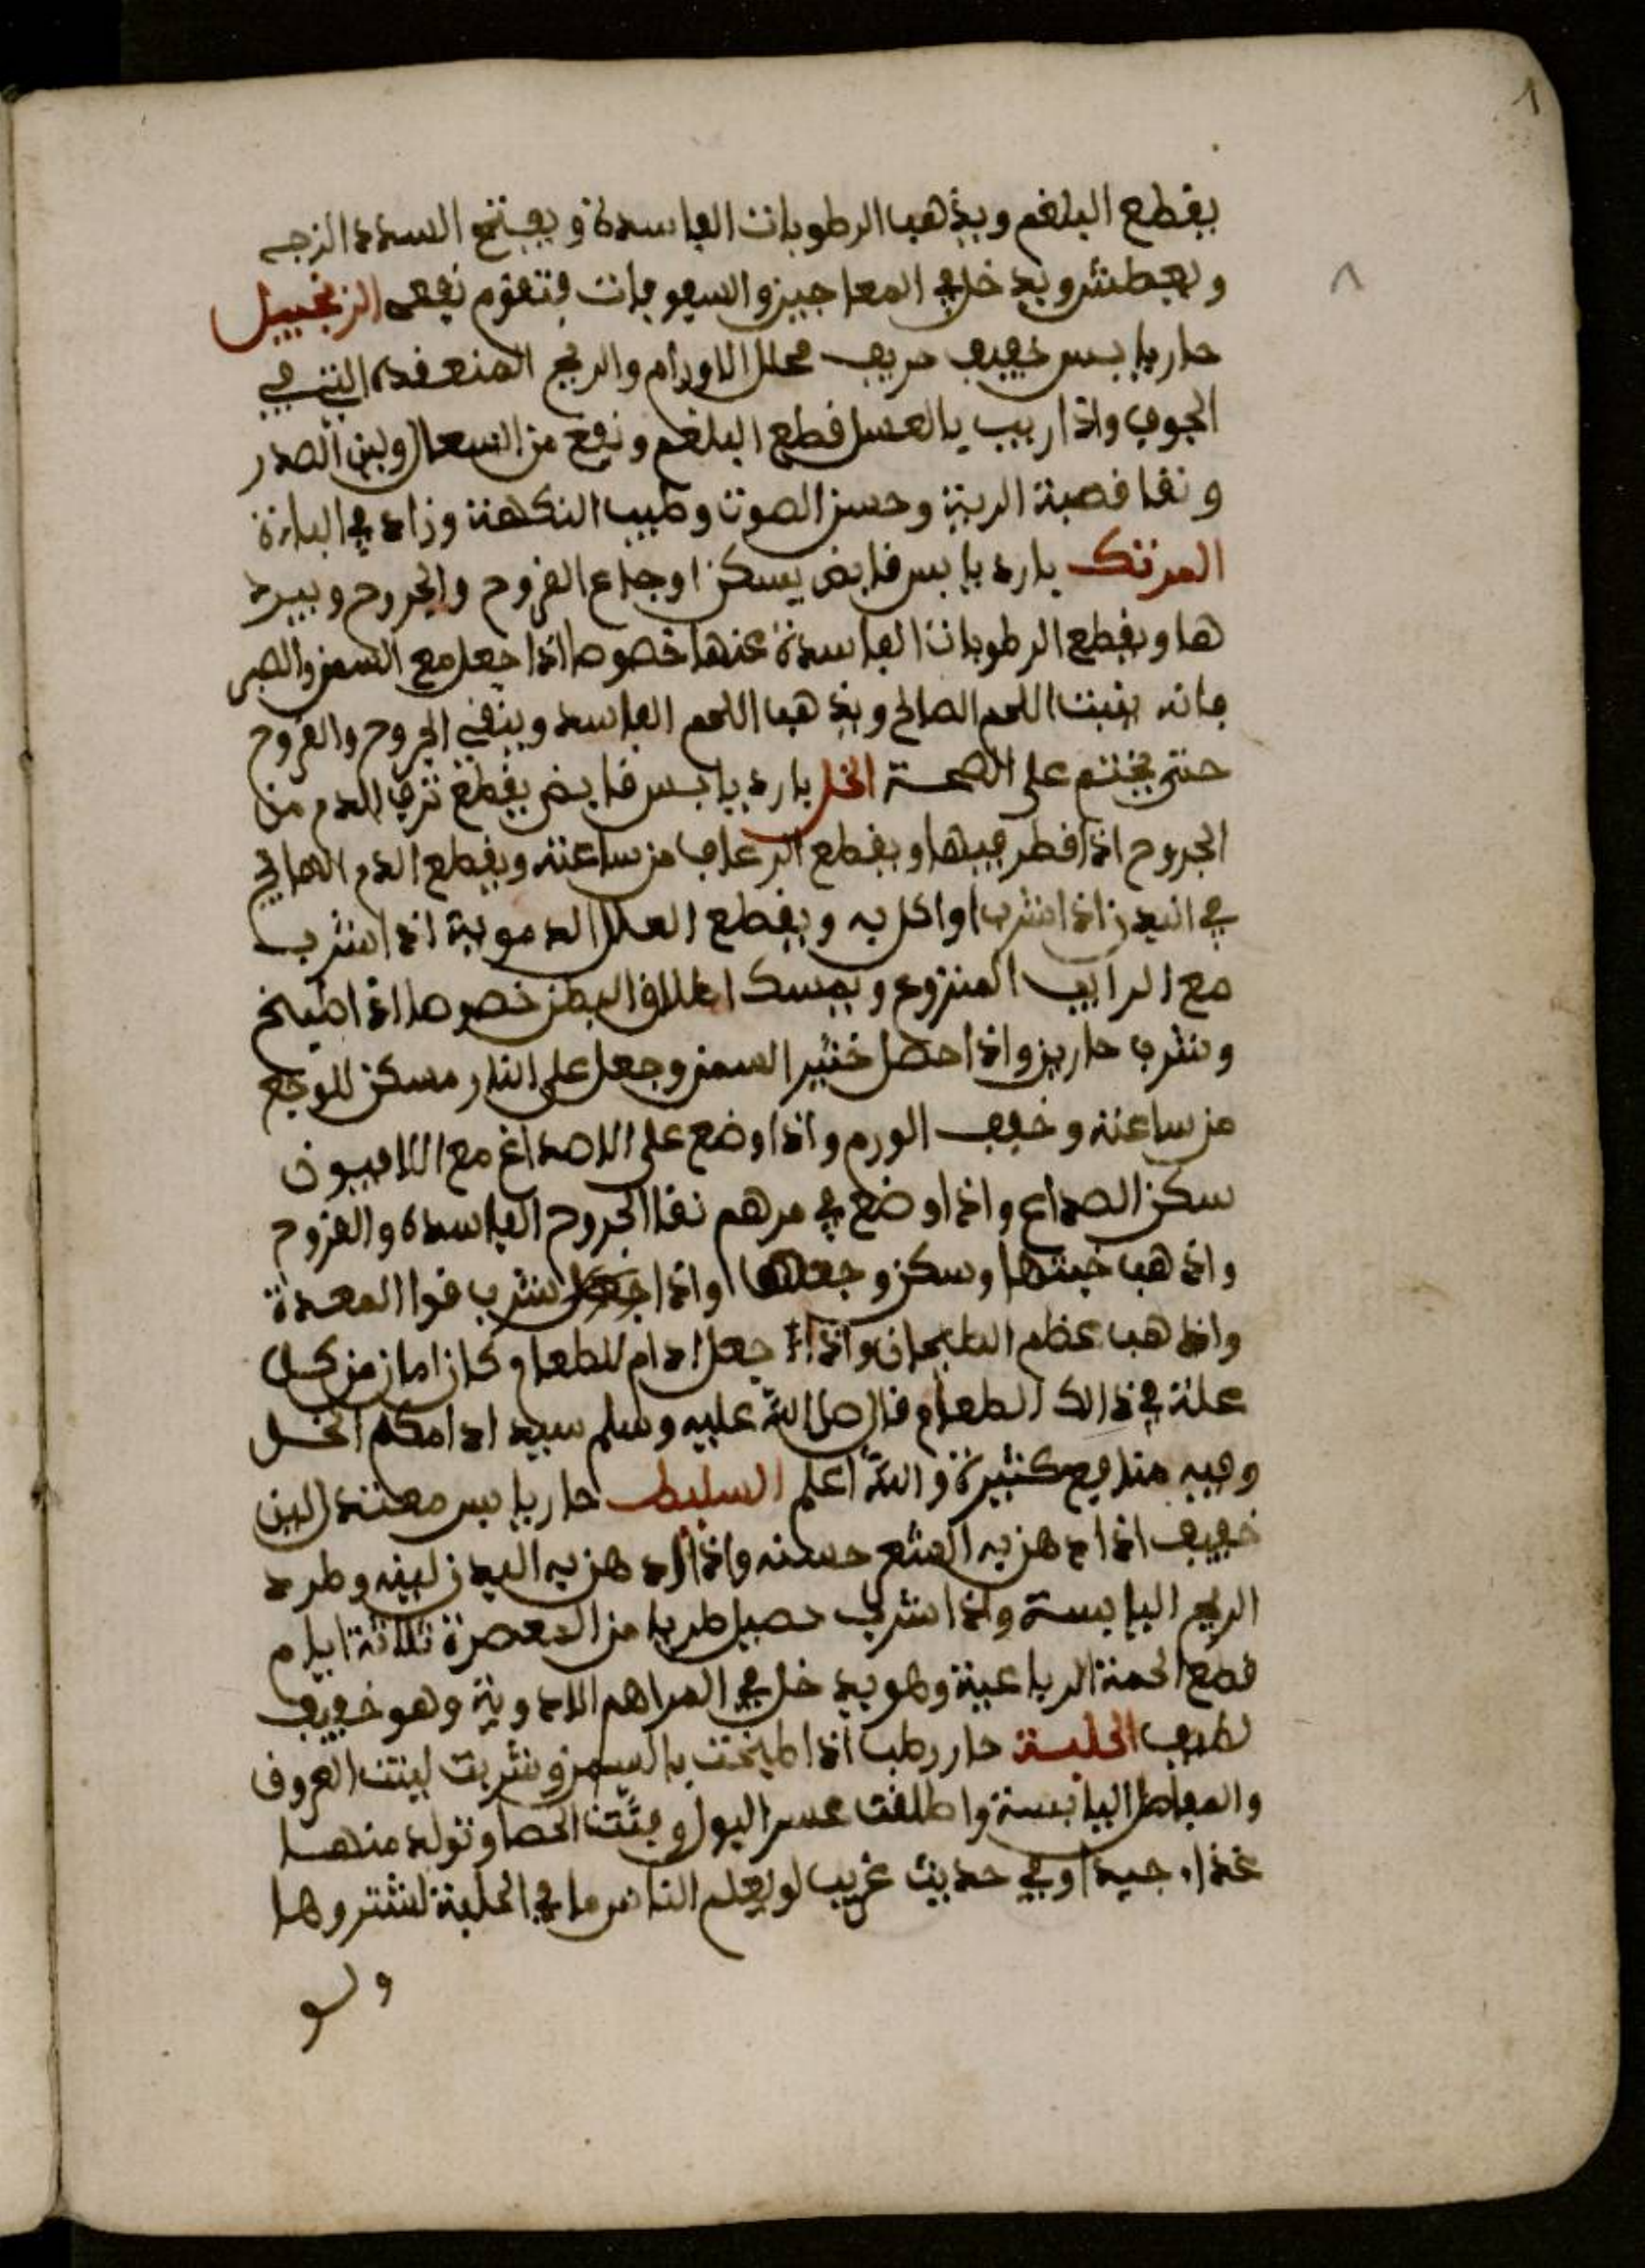 ٨
يقطع البلغم ويذهب الرطوبات الفاسدة ويفتح السدد الزجه
ويعطش ويدخل في المعاجين والسفوفات فتقوم نفعه الزنجبيل
حار يابس خفيف حريف محلل الاورام والريح المنعقدة التي في
الجوف واذا ربب بالعسل قطع البلغم ونفع من السعال ولين الصدر
ونقا قصبة الرية وحسن الصوت وطيب النكهة وزاد في الباءة
المرتك بارد يابس قابض يسكن اوجاع القروح والجروح ويبرد
ها ويقطع الرطوبات الفاسدة عنها خصوصا اذا جعل مع السمن والصبر
فانه ينبت اللحم الصالح ويذهب اللحم الفاسد وينقي الجروح والقروح
حتى يختم على الصحة الخل بارد يابس قابض يقطع نزف الدم من
الجروح اذا قطر فيها ويقطع الرعاف من ساعته ويقطع الدم الهايج
في البدن اذا شرب او اكل به ويقطع العلل الدموية اذا شرب
مع الرايب المنزوع ويمسك اطلاق البطن خصوصا اذا طبخ
وشرب حارين واذا حصل خثير السمن وجعل على النار مسكن للوجع
من ساعته وخفف الورم واذا وضع على الاصداغ مع الافيون
سكن الصداع واذا وضع في مرهم نقا الجروح الفاسدة والقروح
واذهب خبثها وسكن وجعها واذا شرب قوا المعدة
واذهب عظم الطيحان واذا جعل ادام للطعام كان امان من كل
علة في ذالك الطعام قال صل الله عليه وسلم سيد ادامكم الخل
وفيه منافع كثيرة والله اعلم السليط حار يابس معتدل لين
خفيف اذا دهن به الشعر حسنه واذا دهن به البدن لينه وطرد
الريح اليابسة واذا شرب حصيل طريا من المعصرة ثلاثة ايام
قطع الحمة الرباعية وهو يدخل في المراهم الادوية وهو خفيف
لطيف الحلبة حار رطب اذا طبخت بالسمن وشربت لينت العروق
والمفاصل اليابسة واطلقت عسر البول وفتت الحصا وتولد منها
غذاء جيدا وفي حديث غريب لو يعلم الناس ما في الحلبة لشتروها
ولو